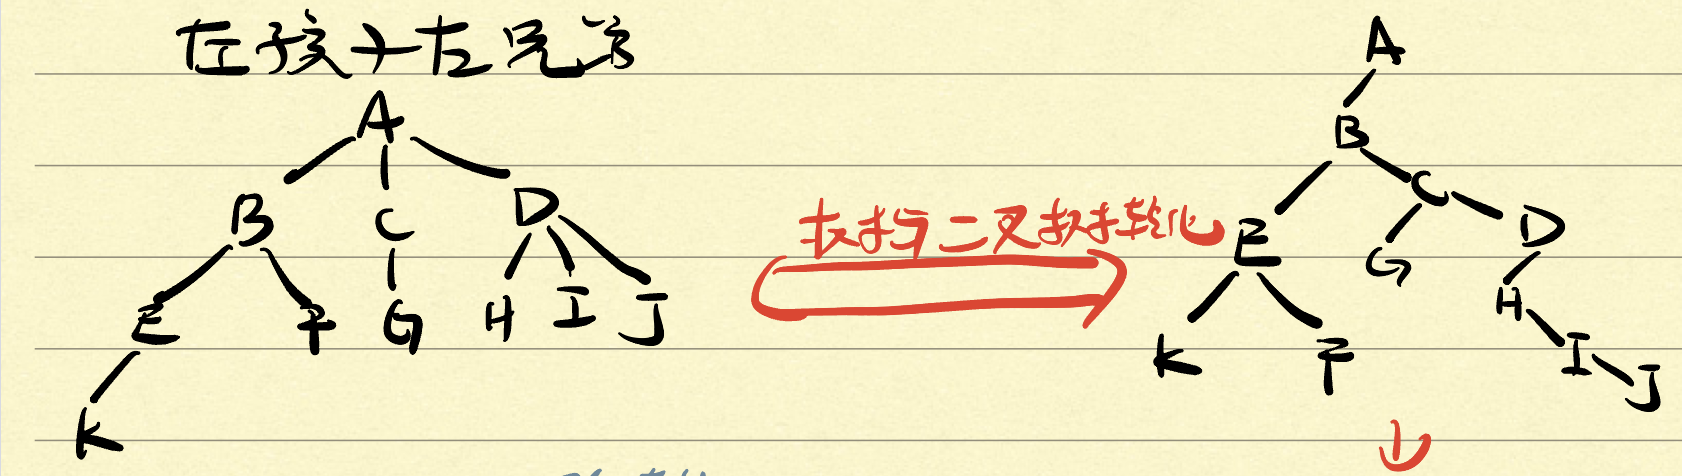 左孩子右兄弟
A
B C D
E F G H I J
K
树与二叉树转化
A
B
C
E D
G
H
K F I J